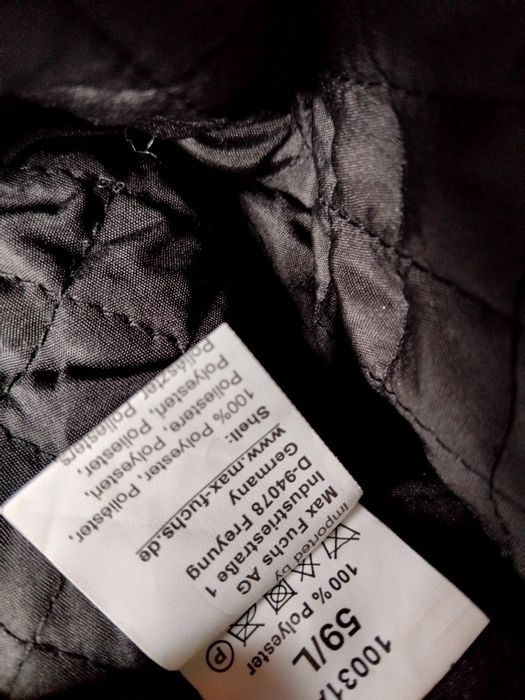 59/L
100% Polyester
P
Imported by
Max Fuchs AG
Industriestraße 1
D-94078 Freyung
Germany
www.max-fuchs.de
Shell:
100% Polyester, Poliéster,
Poliestere, Polyester,
Polyesteri, Poliester,
Poliészter